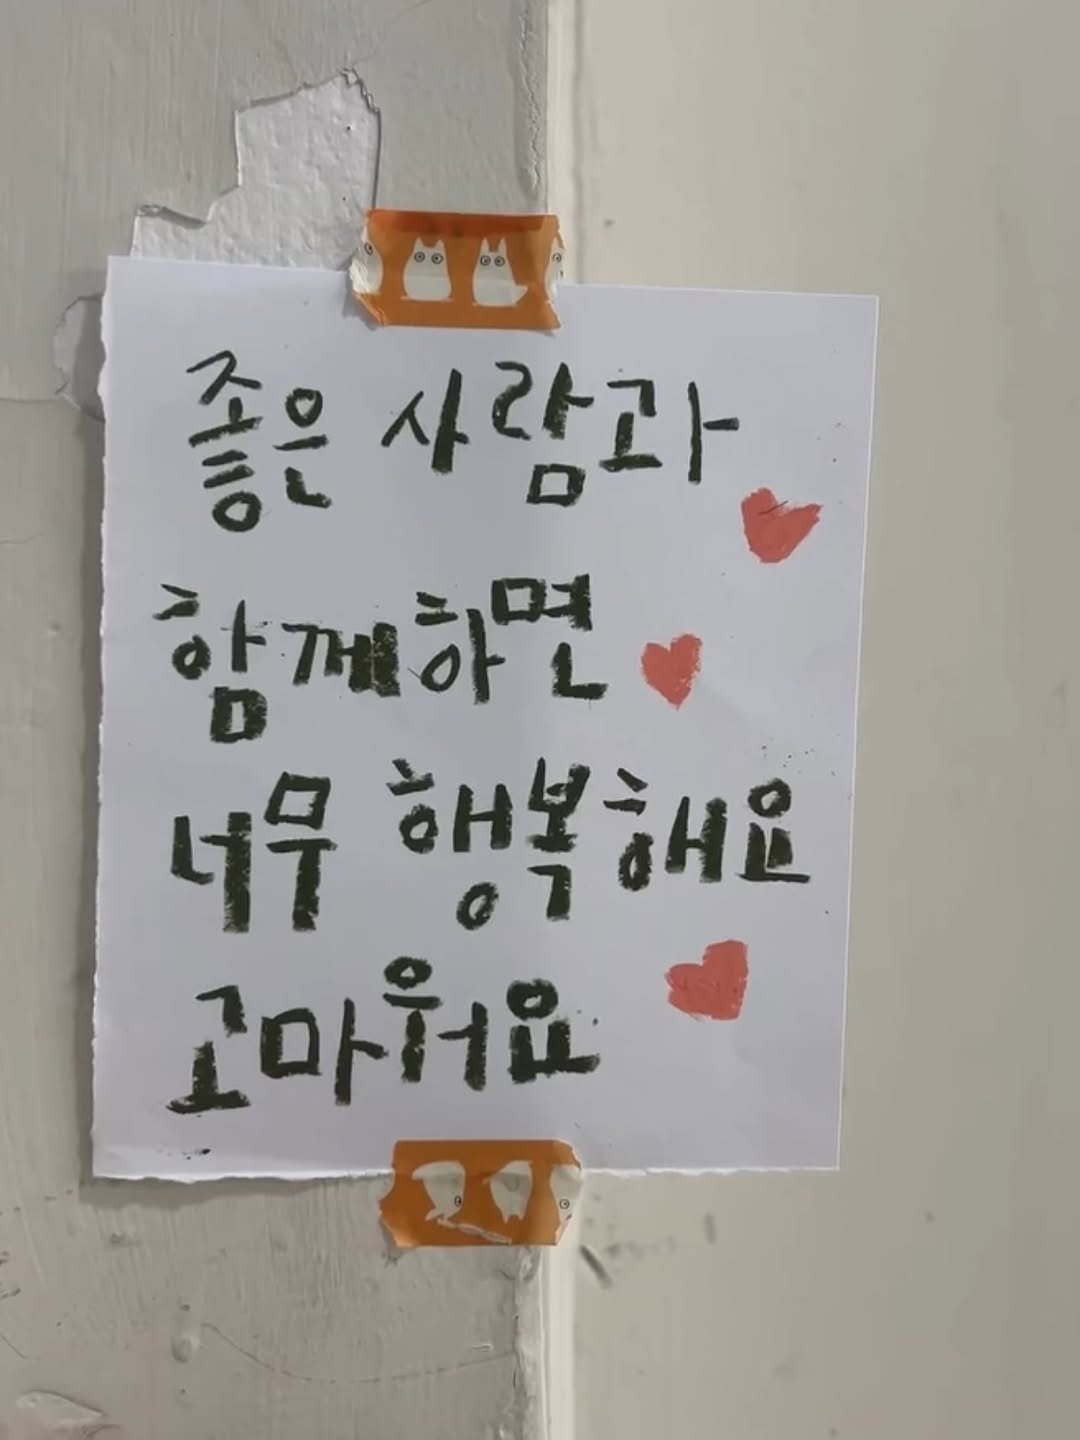 좋은 사람과
함께하면
너무 행복해요
고마워요